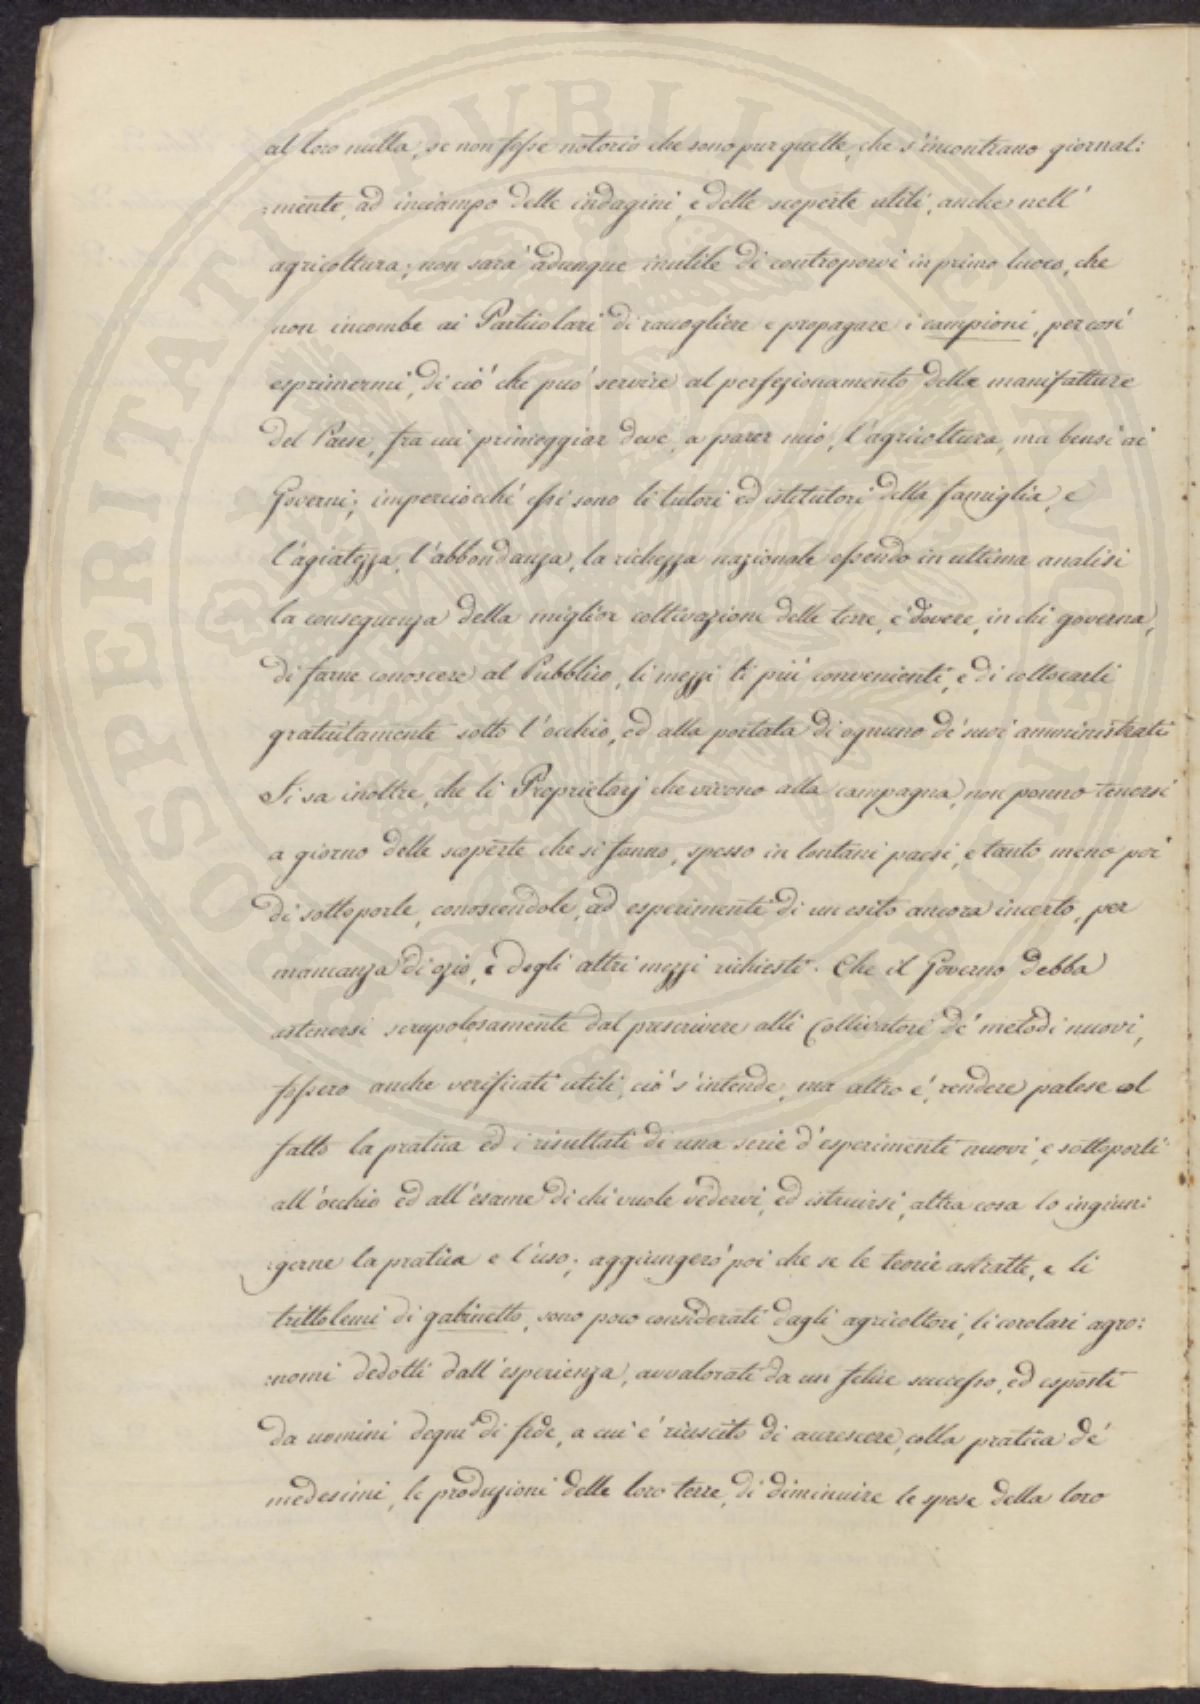 al loro nulla, se non fosse notorio che sono pur quelle, che s'incontrano giornal:
:mente, ad inciampo delle indagini, e delle scoperte utili, anche nell'
agricoltura; non sarà adunque inutile di contraporvi in primo luoco, che
non incombe ai Particolari di raccogliere e propagare i campioni, per così
esprimermi, di ciò che può servire al perfezionamento delle manifatture
del Paese, fra cui primeggiar deve, a parer mio, l'agricoltura, ma bensì ai
Governi; imperciocchè essi sono li tutori ed istitutori della famiglia, e
l'agiatezza, l'abbondanza, la richezza nazionale essendo in ultima analisi
la conseguenza della miglior coltivazione delle terre, è dovere, in chi governa,
di farne conoscere al Pubblico, li mezzi li più convenienti, e di collocarli
gratuitamente sotto l'occhio, ed alla portata di ognuno de' suoi amministrati
Si sa inoltre, che li Proprietarj che vivono alla campagna, non ponno tenersi
a giorno delle scoperte che si fanno, spesso in lontani paesi, e tanto meno poi
di sottoporle, conoscendole, ad esperimenti di un esito ancora incerto, per
mancanza di ozio, e degli altri mezzi richiesti. Che il Governo debba
astenersi scrupolosamente dal prescrivere alli Coltivatori de' metodi nuovi,
fossero anche verificati utili, ciò s'intende, ma altro è, rendere palese col
fatto la pratica ed i risultati di una serie d'esperimenti nuovi, e sottoporli
all'occhio ed all'esame di chi vuole vedervi, ed istruirsi, altra cosa lo ingiun:
:gerne la pratica e l'uso; aggiungerò poi che se le teorie astratte, e li
trittolemi di gabinetto, sono poco considerati dagli agricoltori, li corolari agro:
:nomi dedotti dall'esperienza, avvalorati da un felice successo, ed esposti
da uomini degni di fede, a cui è riuscito di accrescere, colla pratica de'
medesimi, le produzioni delle loro terre, di diminuire le spese della loro
PROSPERITATI PVBLICAE AVGENDAE